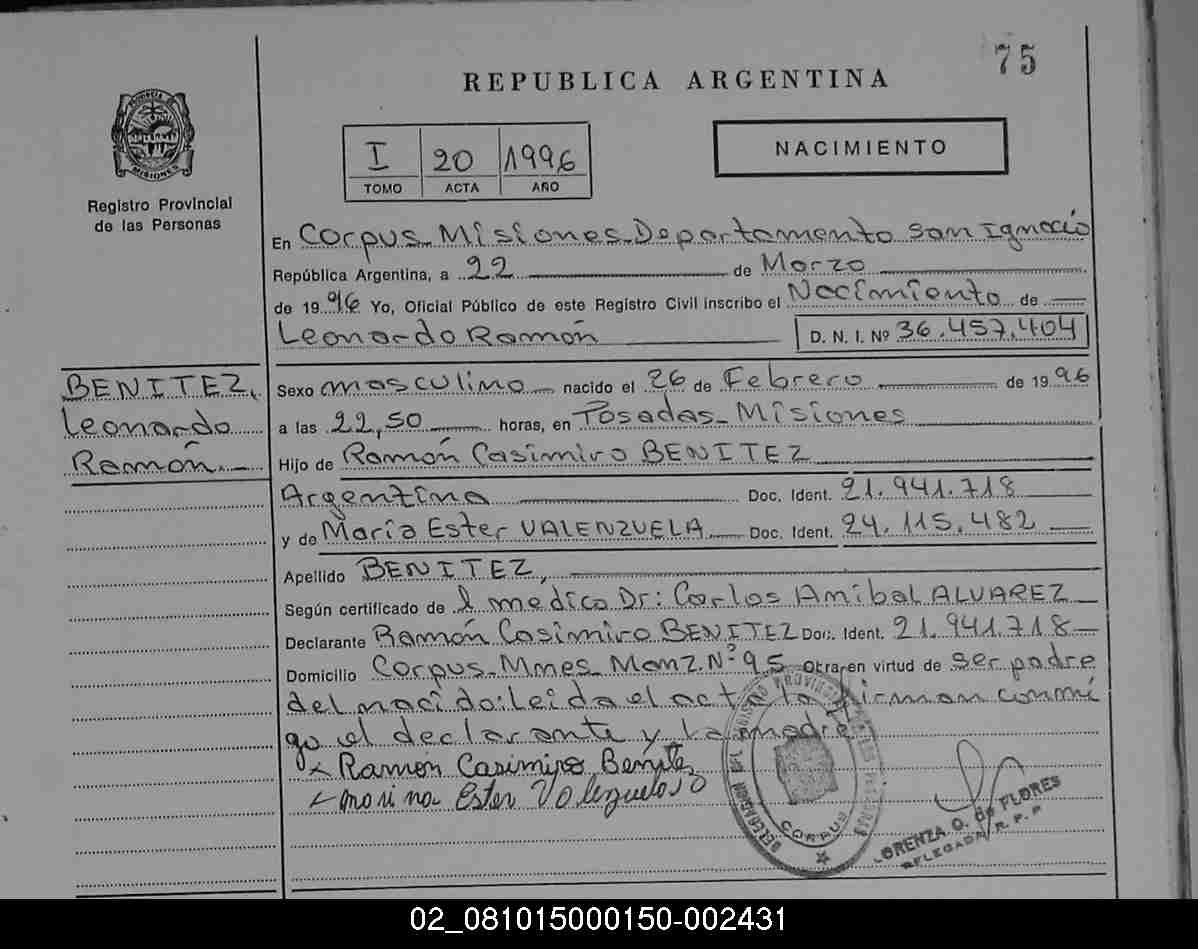 75
REPUBLICA ARGENTINA
PROVINCIA DE MISIONES
Registro Provincial
de las Personas
I 20 1996
TOMO ACTA AÑO
NACIMIENTO
En Corpus Misiones Departamento San Ignacio
República Argentina, a 22 de Marzo
de 1996 Yo, Oficial Público de este Registro Civil inscribo el Nacimiento de
Leonardo Ramón
D. N. I. Nº 36.457.404
BENITEZ,
Leonardo
Ramón.
Sexo masculino nacido el 26 de Febrero de 1996
a las 22,50 horas, en Posadas Misiones
Hijo de Ramón Casimiro BENITEZ
Argentina Doc. Ident. 21.941.718
y de María Ester VALENZUELA Doc. Ident. 24.115.482
Apellido BENITEZ,
Según certificado de l medico Dr: Carlos Anibal ALVAREZ
Declarante Ramón Casimiro BENITEZ Doc. Ident. 21.941.718
Domicilio Corpus Mnes Manz. Nº 95 Obra en virtud de ser padre
del nacido: leida el acta la firman conmi
go el declarante y la madre
x Ramon Casimiro Benitez
Ester
DELEGACION
CORPUS
LORENZA O. de FLORES
DELEGADA R. P. P.
02_081015000150-002431